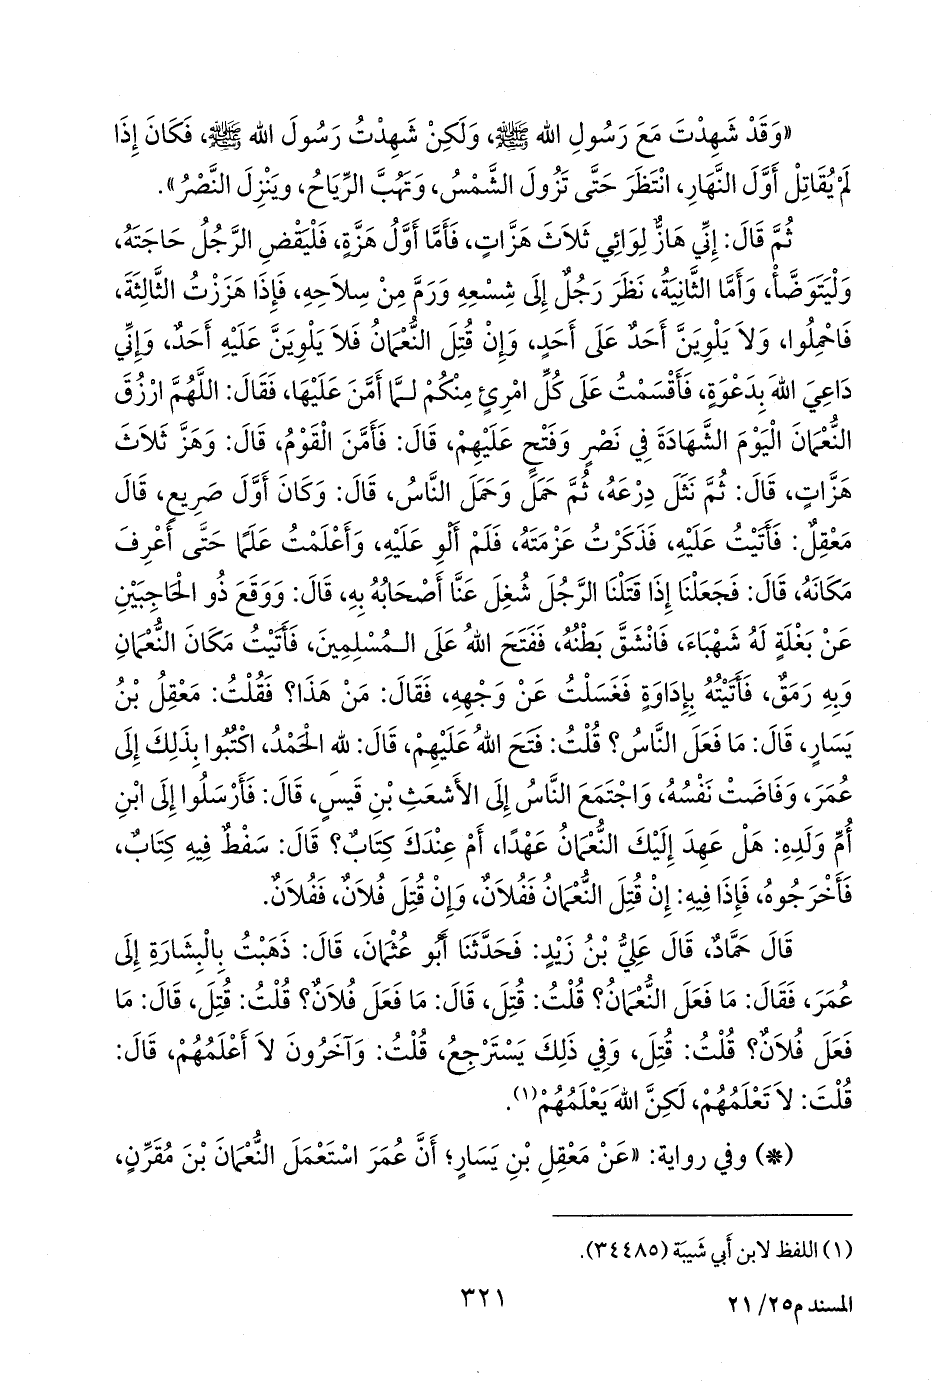 «وَقَدْ شَهِدْتَ مَعَ رَسُولِ الله ﷺ، وَلَكِنْ شَهِدْتُ رَسُولَ الله ﷺ، فَكَانَ إِذَا
لَمْ يُقَاتِلْ أَوَّلَ النَّهَارِ، انْتَظَرَ حَتَّى تَزُولَ الشَّمْسُ، وَتَهُبَّ الرِّيَاحُ، ويَنْزِلَ النَّصْرُ».
ثُمَّ قَالَ: إِنِّي هَازٌّ لِوَائِي ثَلاَثَ هَزَّاتٍ، فَأَمَّا أَوَّلُ هَزَّةٍ، فَلْيَقْضِ الرَّجُلُ حَاجَتَهُ،
وَلْيَتَوَضَّأْ، وَأَمَّا الثَّانِيَةُ، نَظَرَ رَجُلٌ إِلَى شِسْعِهِ وَرَمَّ مِنْ سِلاَحِهِ، فَإِذَا هَزَزْتُ الثَّالِثَةَ،
فَاحْمِلُوا، وَلاَ يَلْوِيَنَّ أَحَدٌ عَلَى أَحَدٍ، وَإِنْ قُتِلَ النُّعْمَانُ فَلاَ يَلْوِيَنَّ عَلَيْهِ أَحَدٌ، وَإِنِّي
دَاعِيَ اللهَ بِدَعْوَةٍ، فَأَقْسَمْتُ عَلَى كُلِّ امْرِئٍ مِنْكُمْ لَـمَّا أَمَّنَ عَلَيْهَا، فَقَالَ: اللَّهُمَّ ارْزُقَ
النُّعْمَانَ الْيَوْمَ الشَّهَادَةَ فِي نَصْرٍ وَفَتْحٍ عَلَيْهِمْ، قَالَ: فَأَمَّنَ الْقَوْمُ، قَالَ: وَهَزَّ ثَلاَثَ
هَزَّاتٍ، قَالَ: ثُمَّ نَثَلَ دِرْعَهُ، ثُمَّ حَمَلَ وَحَمَلَ النَّاسُ، قَالَ: وَكَانَ أَوَّلَ صَرِيعٍ، قَالَ
مَعْقِلٌ: فَأَتَيْتُ عَلَيْهِ، فَذَكَرْتُ عَزْمَتَهُ، فَلَمْ أَلْوِ عَلَيْهِ، وَأَعْلَمْتُ عَلَمًا حَتَّى أَعْرِفَ
مَكَانَهُ، قَالَ: فَجَعَلْنَا إِذَا قَتَلْنَا الرَّجُلَ شُغِلَ عَنَّا أَصْحَابُهُ بِهِ، قَالَ: وَوَقَعَ ذُو الْحَاجِبَيْنِ
عَنْ بَغْلَةٍ لَهُ شَهْبَاءَ، فَانْشَقَّ بَطْنُهُ، فَفَتَحَ اللهُ عَلَى الْـمُسْلِمِينَ، فَأَتَيْتُ مَكَانَ النُّعْمَانِ
وَبِهِ رَمَقٌ، فَأَتَيْتُهُ بِإِدَاوَةٍ فَغَسَلْتُ عَنْ وَجْهِهِ، فَقَالَ: مَنْ هَذَا؟ فَقُلْتُ: مَعْقِلُ بْنُ
يَسَارٍ، قَالَ: مَا فَعَلَ النَّاسُ؟ قُلْتُ: فَتَحَ اللهُ عَلَيْهِمْ، قَالَ: لله الْحَمْدُ، اكْتُبُوا بِذَلِكَ إِلَى
عُمَرَ، وَفَاضَتْ نَفْسُهُ، وَاجْتَمَعَ النَّاسُ إِلَى الأَشْعَثِ بْنِ قَيسٍ، قَالَ: فَأَرْسَلُوا إِلَى ابْنِ
أُمِّ وَلَدِهِ: هَلْ عَهِدَ إِلَيْكَ النُّعْمَانُ عَهْدًا، أَمْ عِنْدَكَ كِتَابٌ؟ قَالَ: سَفْطٌ فِيهِ كِتَابٌ،
فَأَخْرَجُوهُ، فَإِذَا فِيهِ: إِنْ قُتِلَ النُّعْمَانُ فَفُلاَنٌ، وَإِنْ قُتِلَ فُلاَنٌ، فَفُلاَنٌ.
قَالَ حَمَّادٌ، قَالَ عَلِيُّ بْنُ زَيْدٍ: فَحَدَّثَنَا أَبُو عُثْمَانَ، قَالَ: ذَهَبْتُ بِالْبِشَارَةِ إِلَى
عُمَرَ، فَقَالَ: مَا فَعَلَ النُّعْمَانُ؟ قُلْتُ: قُتِلَ، قَالَ: مَا فَعَلَ فُلاَنٌ؟ قُلْتُ: قُتِلَ، قَالَ: مَا
فَعَلَ فُلاَنٌ؟ قُلْتُ: قُتِلَ، وَفِي ذَلِكَ يَسْتَرْجِعُ، قُلْتُ: وَآخَرُونَ لاَ أَعْلَمُهُمْ، قَالَ:
قُلْتَ: لاَ تَعْلَمُهُمْ، لَكِنَّ اللهَ يَعْلَمُهُمْ(١).
(*) وفي رواية: «عَنْ مَعْقِلِ بْنِ يَسَارٍ؛ أَنَّ عُمَرَ اسْتَعْمَلَ النُّعْمَانَ بْنَ مُقَرِّنٍ،
(١) اللفظ لابن أَبي شَيبَة (٣٤٤٨٥).
٣٢١
المسند م٢٥/ ٢١